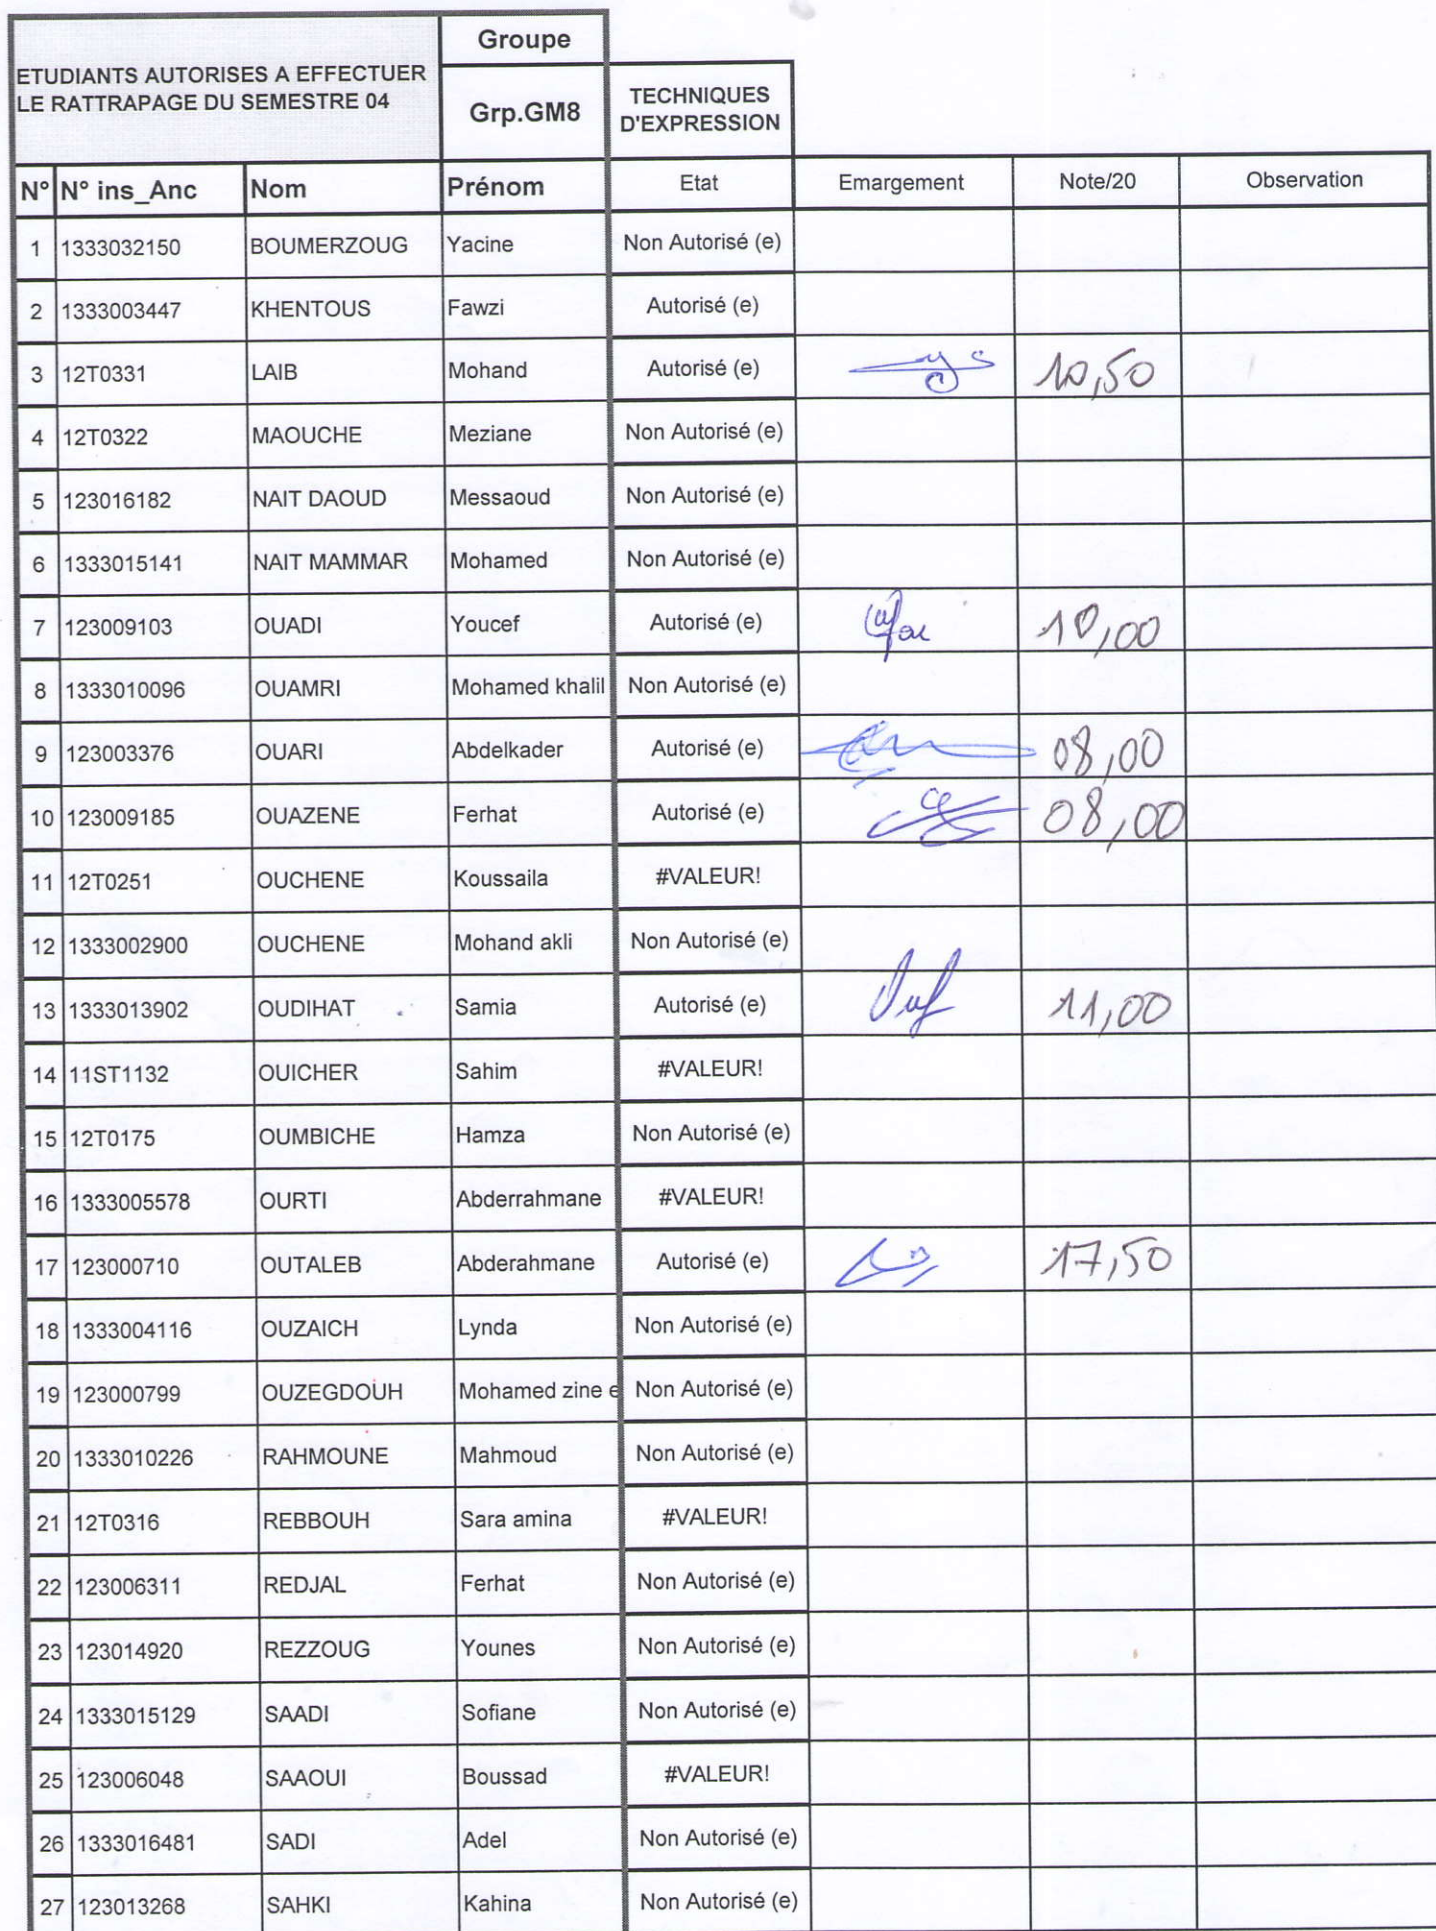 Groupe
ETUDIANTS AUTORISES A EFFECTUER
LE RATTRAPAGE DU SEMESTRE 04
Grp.GM8
TECHNIQUES
D'EXPRESSION
N° N° ins_Anc Nom Prénom Etat Emargement Note/20 Observation
1 1333032150 BOUMERZOUG Yacine Non Autorisé (e)
2 1333003447 KHENTOUS Fawzi Autorisé (e)
3 12T0331 LAIB Mohand Autorisé (e) 10,50
4 12T0322 MAOUCHE Meziane Non Autorisé (e)
5 123016182 NAIT DAOUD Messaoud Non Autorisé (e)
6 1333015141 NAIT MAMMAR Mohamed Non Autorisé (e)
7 123009103 OUADI Youcef Autorisé (e) 10,00
8 1333010096 OUAMRI Mohamed khalil Non Autorisé (e)
9 123003376 OUARI Abdelkader Autorisé (e) 08,00
10 123009185 OUAZENE Ferhat Autorisé (e) 08,00
11 12T0251 OUCHENE Koussaila #VALEUR!
12 1333002900 OUCHENE Mohand akli Non Autorisé (e)
13 1333013902 OUDIHAT Samia Autorisé (e) 11,00
14 11ST1132 OUICHER Sahim #VALEUR!
15 12T0175 OUMBICHE Hamza Non Autorisé (e)
16 1333005578 OURTI Abderrahmane #VALEUR!
17 123000710 OUTALEB Abderahmane Autorisé (e) 17,50
18 1333004116 OUZAICH Lynda Non Autorisé (e)
19 123000799 OUZEGDOUH Mohamed zine e Non Autorisé (e)
20 1333010226 RAHMOUNE Mahmoud Non Autorisé (e)
21 12T0316 REBBOUH Sara amina #VALEUR!
22 123006311 REDJAL Ferhat Non Autorisé (e)
23 123014920 REZZOUG Younes Non Autorisé (e)
24 1333015129 SAADI Sofiane Non Autorisé (e)
25 123006048 SAAOUI Boussad #VALEUR!
26 1333016481 SADI Adel Non Autorisé (e)
27 123013268 SAHKI Kahina Non Autorisé (e)